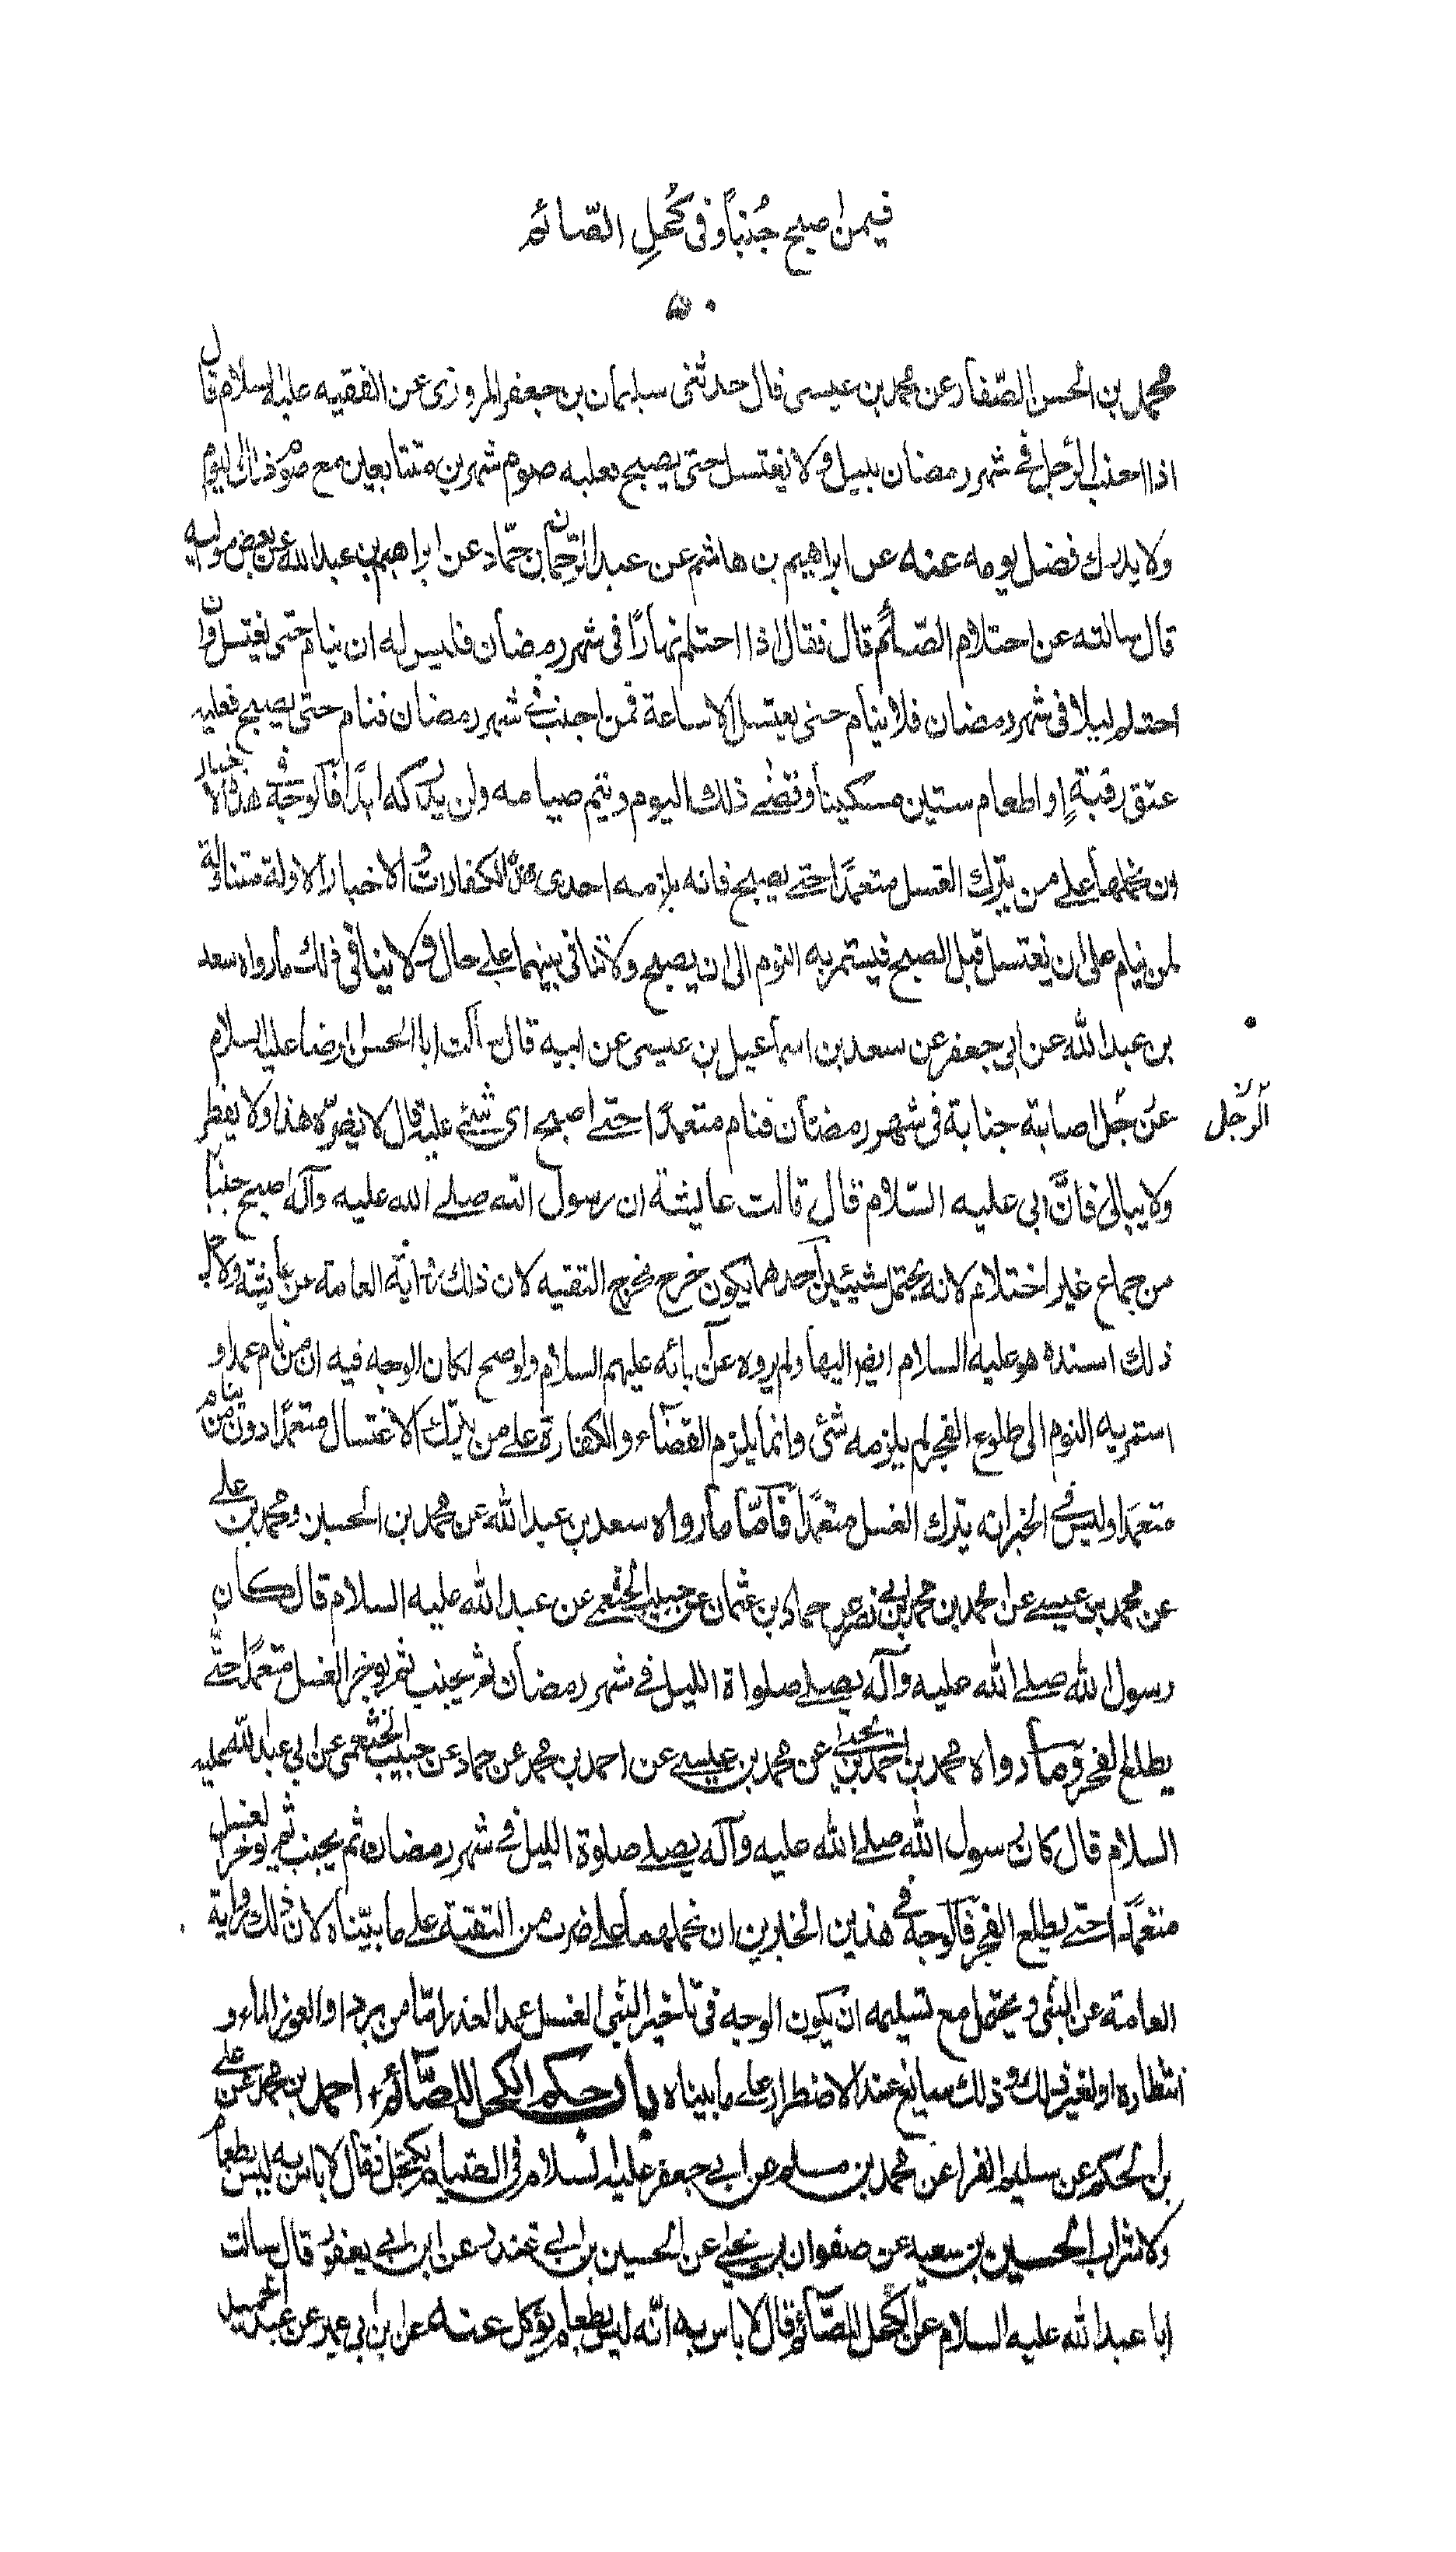 فيمن اصبح جُنباً وفى كُحل الصّائم
٥٠
محمد بن الحسن الصّفار عن محمد بن عيسى قال حدثنى سليمان بن جعفر المروزى عن الفقيه عليه السلام قال
اذا اجنب الرجل فى شهر رمضان بليل ولا يغتسل حتى يصبح فعليه صوم شهرين متتابعين مع صوم ذلك اليوم
ولا يدرك فضل يومه عنه عن ابراهيم بن هاشم عن عبد الرحمان بن حمّاد عن ابراهيم بن عبد الله عن بعض مواليه
قال سالته عن احتلام الصّائم قال فقال اذا احتلم نهارًا فى شهر رمضان فليس له ان ينام حتى يغتسل وان
احتلم ليلا فى شهر رمضان فلا ينام حتى يغتسل الا ساعة فمن اجنب فى شهر رمضان فنام حتى يصبح فعليه
عتق رقبةٍ او اطعام ستين مسكيناً وقضى ذلك اليوم ويتم صيامه ولن يدركه ابدًا فالوجه فى هذه الاخبار
ان نحملها على من يترك الغسل متعمدًا حتى يصبح فانه يلزمه احدى هذه الكفارات والاخبار الاولة متناولة
لمن ينام على ان يغتسل قبل الصبح فيستمر به النوم الى ان يصبح ولا تنافى بينهما على حال ولا ينافى ذلك ما رواه سعد
بن عبد الله عن ابى جعفر عن سعد بن اسماعيل بن عيسى عن ابيه قال سألت ابا الحسن الرضا عليه السلام
عن رجل اصابته جنابة فى شهر رمضان فنام متعمدًا حتى اصبح اى شئ عليه قال لا يضرّه هذا ولا يفطر
الرّجل
ولا يبالى فانّ ابى عليه السّلام قال قالت عايشة ان رسول الله صلى الله عليه وآله اصبح جنبًا
من جماع غير احتلام لانه يحتمل شيئين احدهما يكون خرج مخرج التقيه لان ذلك رواية العامة عن عائشة ولاجل
ذلك اسنده هو عليه السلام ايضا اليها ولم يروه عن آبائه عليهم السلام ولو صح لكان الوجه فيه ان من نام عمدا و
استمر به النوم الى طلوع الفجر لم يلزمه شئ وانما يلزم القضاء والكفارة على من يترك الاغتسال متعمدًا دون من ينام
متعمدا وليس فى الخبر انه يترك الغسل متعمّدًا فامّا ما رواه سعد بن عبد الله عن محمد بن الحسين ومحمد بن على
عن محمد بن عيسى عن احمد بن محمد بن ابى نصر عن حماد بن عثمان عن حبيب الخثعمى عن عبد الله عليه السلام قال كان
رسول الله صلى الله عليه وآله يصلى صلواة الليل فى شهر رمضان ثم يجنب ثم يوخر الغسل متعمدًا حتّى
يطلع الفجر وما رواه محمد بن احمد بن يحيى عن محمد بن عيسى عن احمد بن محمد عن حماد عن حبيب الخثعمى عن ابى عبد الله عليه
السلام قال كان رسول الله صلى الله عليه وآله يصلى صلوة الليل فى شهر رمضان ثم يجنب ثم يوخر الغسل
متعمّدًا حتى يطلع الفجر فالوجه فى هذين الخبرين ان نحملهما على ضرب من التقية على ما بيّناه لان ذلك رواية
العامة عن النبى ويحتمل مع تسليمه ان يكون الوجه فى تاخير النبى الغسل عمدا لعذر امّا من برد او العوز الماء و
انتظاره او لغير ذلك وذلك سايغ عند الاضطرار على ما بيناه باب حكم الكحل للصّائم احمد بن محمد عن على
بن الحكم عن سليم الفرا عن محمد بن مسلم عن ابى جعفر عليه السلام فى الصّيام يكتحل فقال لا باس به ليس بطعام
ولا شراب الحسين بن سعيد عن صفوان بن يحيى عن الحسين بن ابى غندر عن ابن ابى يعفور قال سالت
ابا عبد الله عليه السلام عن الكحل للصّائم قال لا باس به انّه ليس بطعام يؤكل عنه عن ابن ابى عمير عن عبد الحميد